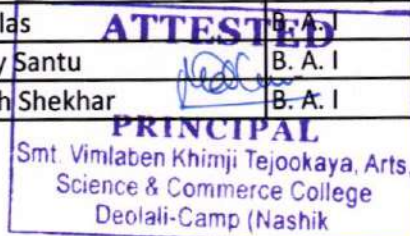 las B. A. I
ATTESTED
y Santu B. A. I
h Shekhar B. A. I
PRINCIPAL
Smt. Vimlaben Khimji Tejookaya, Arts,
Science & Commerce College
Deolali-Camp (Nashik